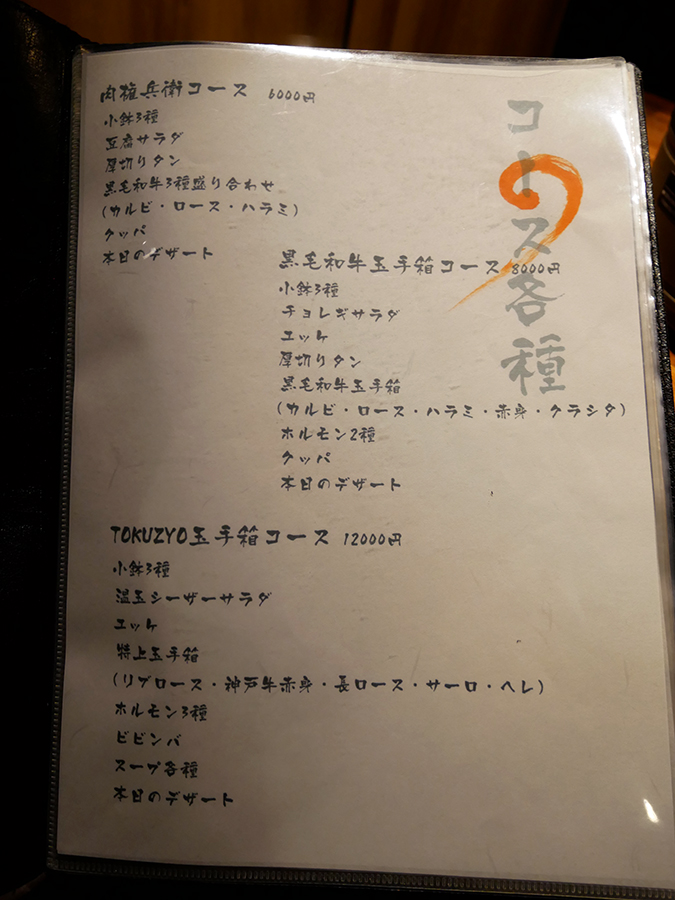 コース各種
肉権兵衛コース 6000円
小鉢3種
豆腐サラダ
厚切りタン
黒毛和牛3種盛り合わせ
(カルビ・ロース・ハラミ)
クッパ
本日のデザート
黒毛和牛玉手箱コース 8000円
小鉢3種
チョレギサラダ
ユッケ
厚切りタン
黒毛和牛玉手箱
(カルビ・ロース・ハラミ・赤身・クラシタ)
ホルモン2種
クッパ
本日のデザート
TOKUZYO玉手箱コース 12000円
小鉢3種
温玉シーザーサラダ
ユッケ
特上玉手箱
(リブロース・神戸牛赤身・長ロース・サーロ・ヘレ)
ホルモン3種
ビビンバ
スープ各種
本日のデザート